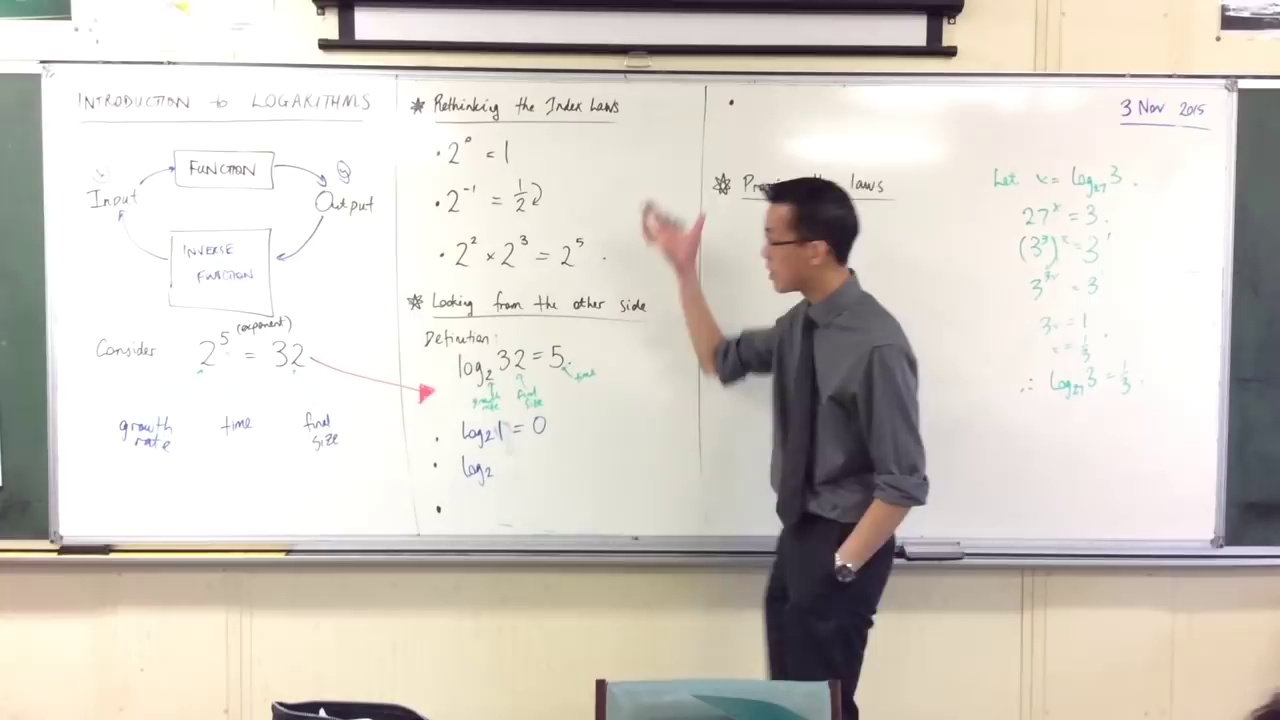 INTRODUCTION to LOGARITHMS
FUNCTION
Input
Output
INVERSE
FUNCTION
(exponent)
Consider 2⁵ = 32
growth rate
time
final size
Rethinking the Index Laws
• 2⁰ = 1
• 2⁻¹ = 1/2
• 2² × 2³ = 2⁵
Looking from the other side
Definition:
log₂ 32 = 5
growth rate
final size
time
• log₂ 1 = 0
• log₂
•
•
laws
3 Nov 2015
Let x = log₂₇ 3.
27ˣ = 3.
(3³)ˣ = 3¹
3³ˣ = 3
3x = 1
x = 1/3
∴ log₂₇ 3 = 1/3